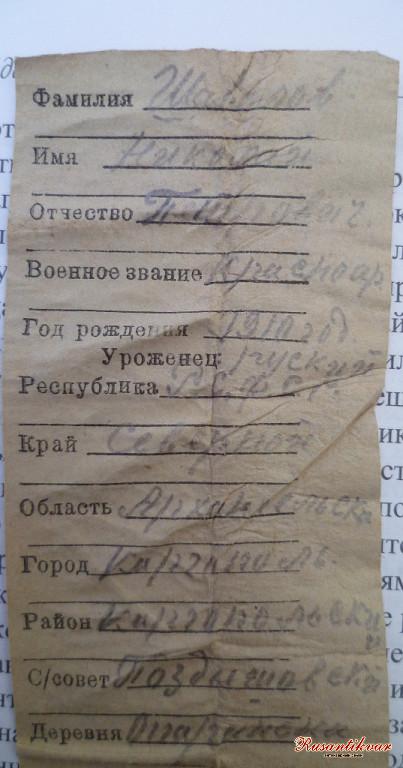 Фамилия
Имя Николай
Отчество
Военное звание Красноар
Год рождения 1910 год
Уроженец: руский
Республика Р.С.Ф.С.Р.
Край Северной
Область Архангельска
Город Каргополь.
Район Каргопольский
С/совет Поздышевский
Деревня
Rusantikvar